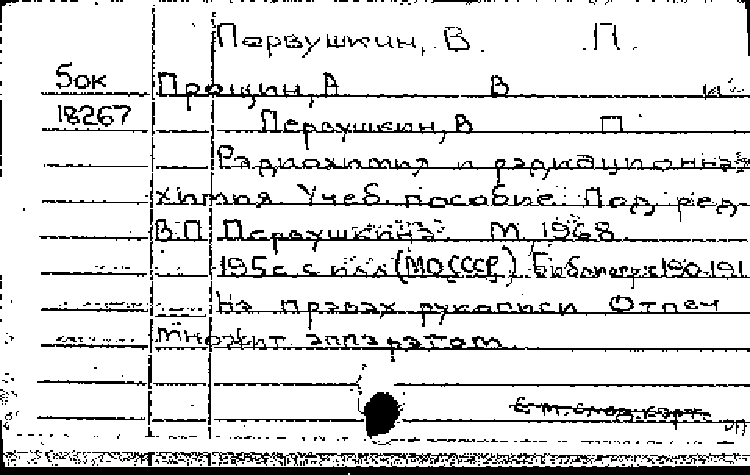 Первушкин, В. П.
Бок
Прощин, А В и
18267
Первушкин, В П
Радиохимия и радиационная
химия. Учеб. пособие. Под ред.
В.П. Первушкина. М. 1968.
195 с. с илл (МО СССР) Библиогр: с 190-191
На правах рукописи. Отпеч
множит аппаратом.
См. след. карт.